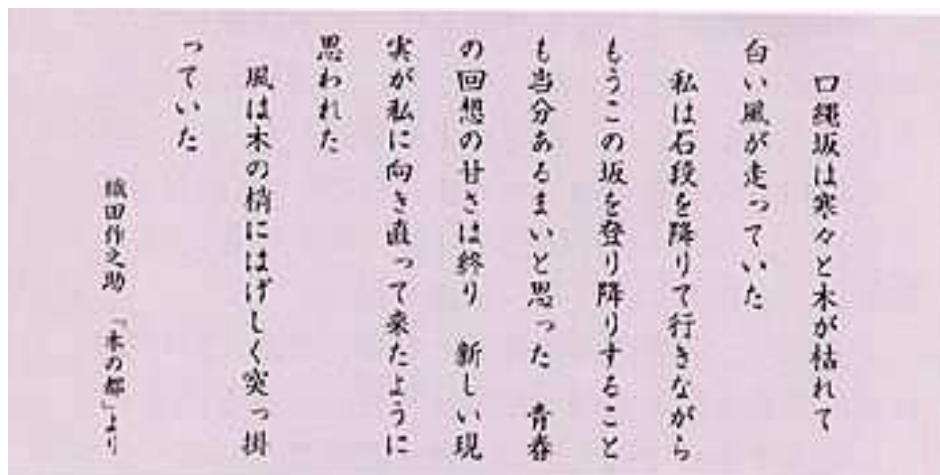 口縄坂は寒々と木が枯れて
白い風が走っていた
私は石段を降りて行きながら
もうこの坂を登り降りすること
も当分あるまいと思った 青春
の回想の甘さは終り 新しい現
実が私に向き直って来たように
思われた
風は木の梢にはげしく突っ掛
っていた
織田作之助 「木の都」より